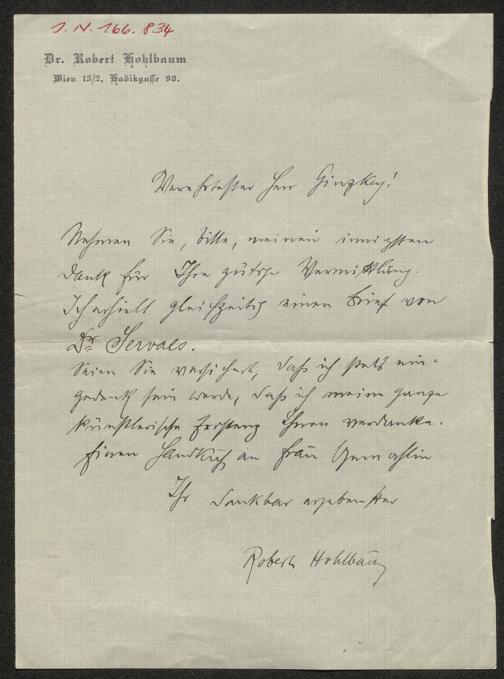 J. N. 166.834
Dr. Robert Hohlbaum
Wien 13/2, Hadikgasse 90.
Verehrtester Herr Ginzkey!
Nehmen Sie, bitte, meinen innigsten
Dank für Ihre gütige Vermittlung.
Ich erhielt gleichzeitig einen Brief von
Dr. Servaes.
Seien Sie versichert, daß ich stets ein-
gedenk sein werde, daß ich meine ganze
künstlerische Existenz Ihnen verdanke.
Einen Handkuß an Frau Gemahlin
Ihr dankbar ergebenster
Robert Hohlbaum